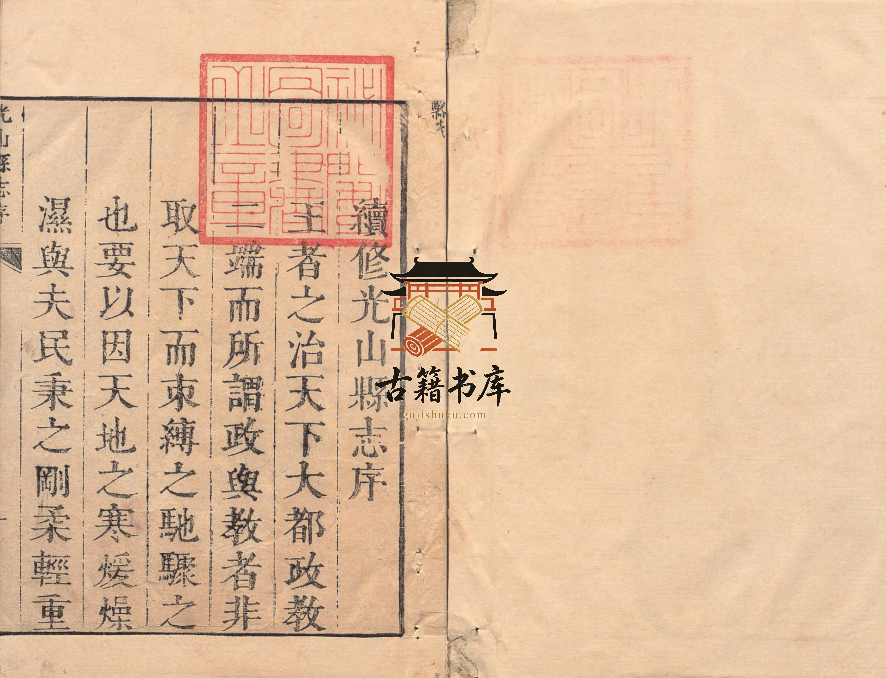 續修光山縣志序
王者之治天下大都政教
二端而所謂政與教者非
取天下而束縛之馳驟之
也要以因天地之寒煖燥
濕與夫民秉之剛柔輕重
光山縣志序
古籍书库
gujishuku.com